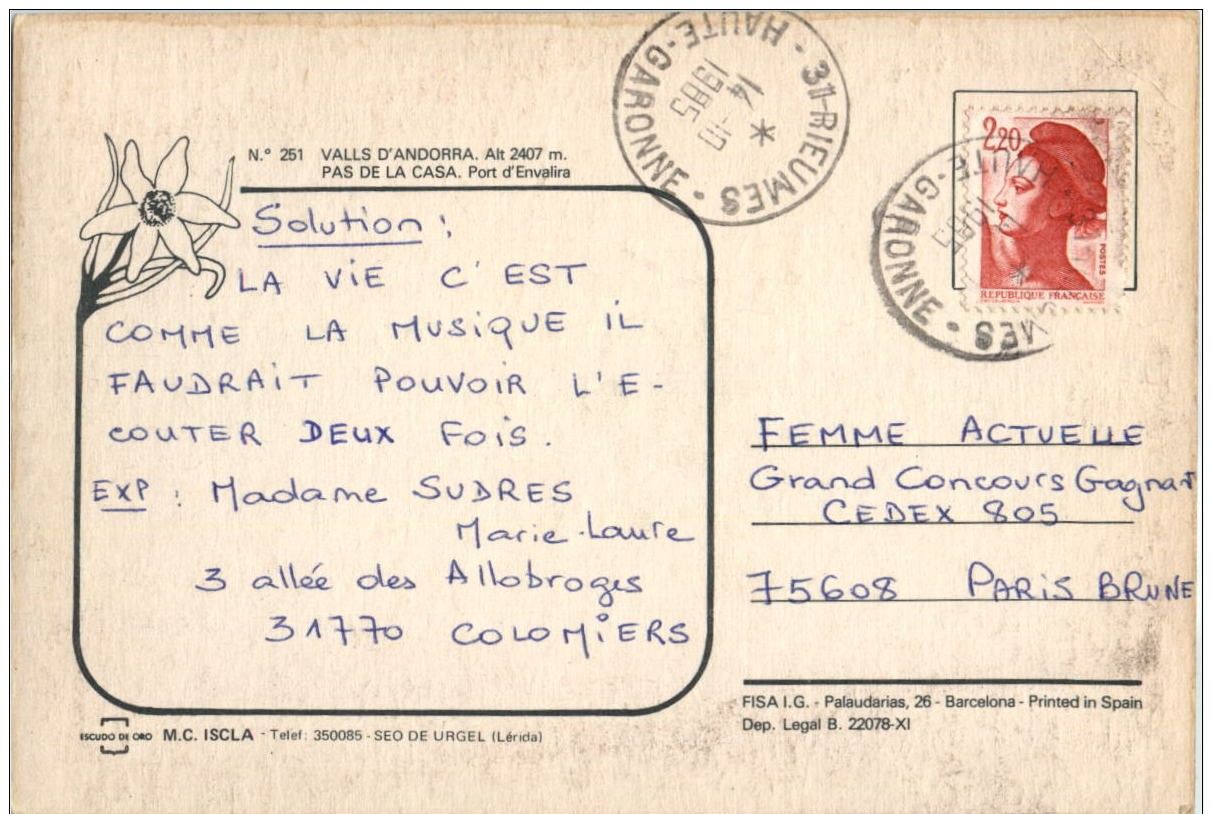 N.° 251 VALLS D'ANDORRA. Alt 2407 m.
PAS DE LA CASA. Port d'Envalira
Solution :
LA ViE C'EST
COMME LA MUSiQUE iL
FAUDRAiT POUVOiR L'E-
COUTER DEUX FOiS.
EXP : Madame SUDRES
Marie-Laure
3 allée des Allobroges
31770 COLOMiERS
31-RIEUMES
HAUTE-GARONNE
14-10
1985
2,20
POSTES
REPUBLIQUE FRANÇAISE
HAUTE-GARONNE
1985
FEMME ACTUELLE
Grand Concours Gagnant
CEDEX 805
75608 PARiS BRUNE
FISA I.G. - Palaudarias, 26 - Barcelona - Printed in Spain
Dep. Legal B. 22078-XI
ESCUDO DE ORO M.C. ISCLA - Telef: 350085 - SEO DE URGEL (Lérida)